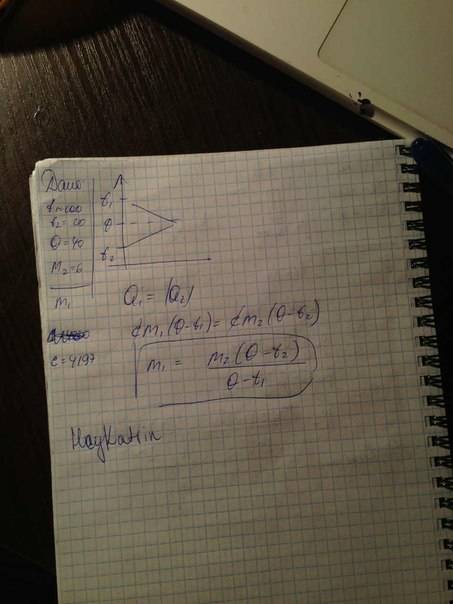 Дано
t₁=100
Θ=40
M₂=6
m₁
c=4197
t₁
Θ
t₂
Q₁ = |Q₂|
cm₁(Θ-t₁)= cm₂(Θ-t₂)
m₁ = m₂(Θ-t₂) / Θ-t₁
HeyKatrin